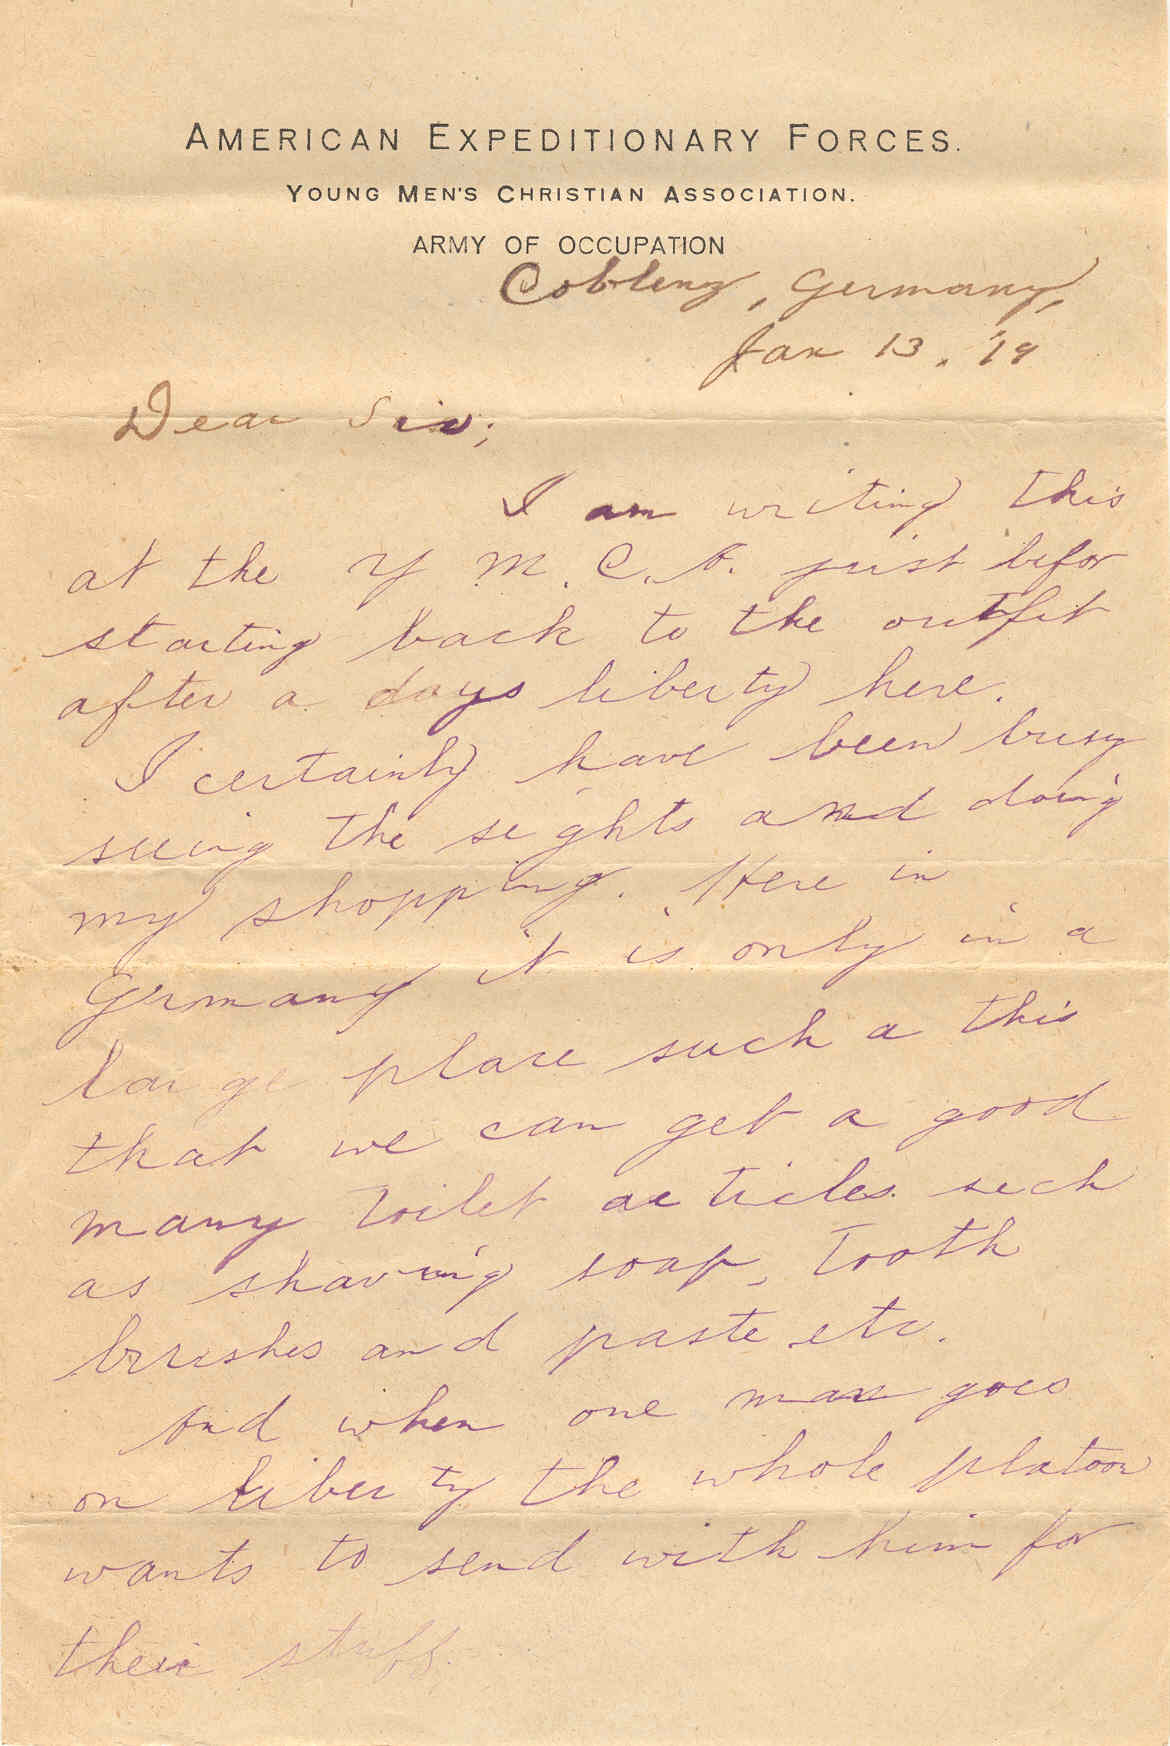 AMERICAN EXPEDITIONARY FORCES.
YOUNG MEN'S CHRISTIAN ASSOCIATION.
ARMY OF OCCUPATION
Coblenz, Germany,
Jan 13, '19
Dear Sis;
I am writing this
at the Y M. C. A. just befor
starting back to the outfit
after a days liberty here.
I certainly have been busy
seeing the sights and doing
my shopping. Here in
Germany it is only in a
large place such a this
that we can get a good
many toilet articles such
as shaving soap, tooth
brushes and paste etc.
And when one man goes
on liberty the whole platoon
wants to send with him for
their stuff.